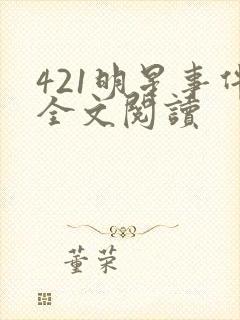 421明星事件
全文閱讀
董荣